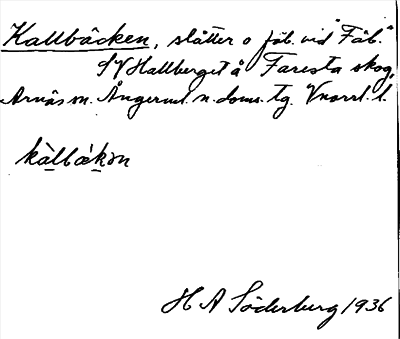 Kallbäcken, slåtter o fäb. vid "Fäb."
SV Hallberget å Faresta skog,
Arnäs sn. Ångerml. n. doms. tg. Vnorrl. l.
kàlbákən
H A Söderberg 1936